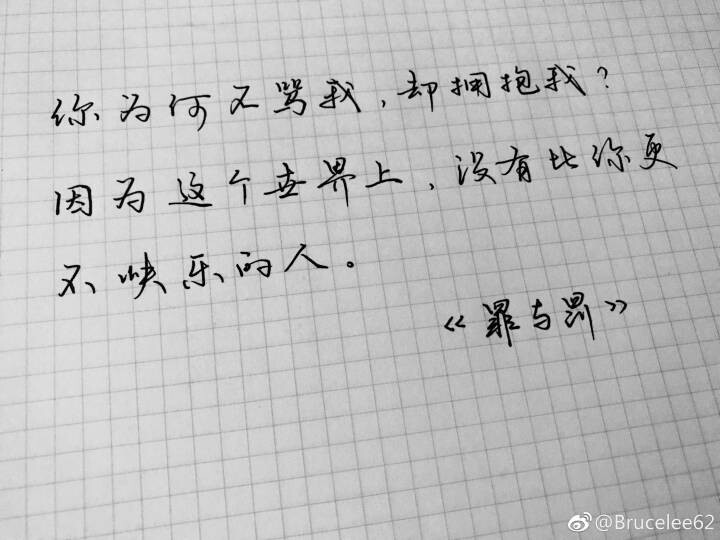 你为何不骂我，却拥抱我？
因为这个世界上，没有比你更
不快乐的人。
《罪与罚》
@Brucelee62